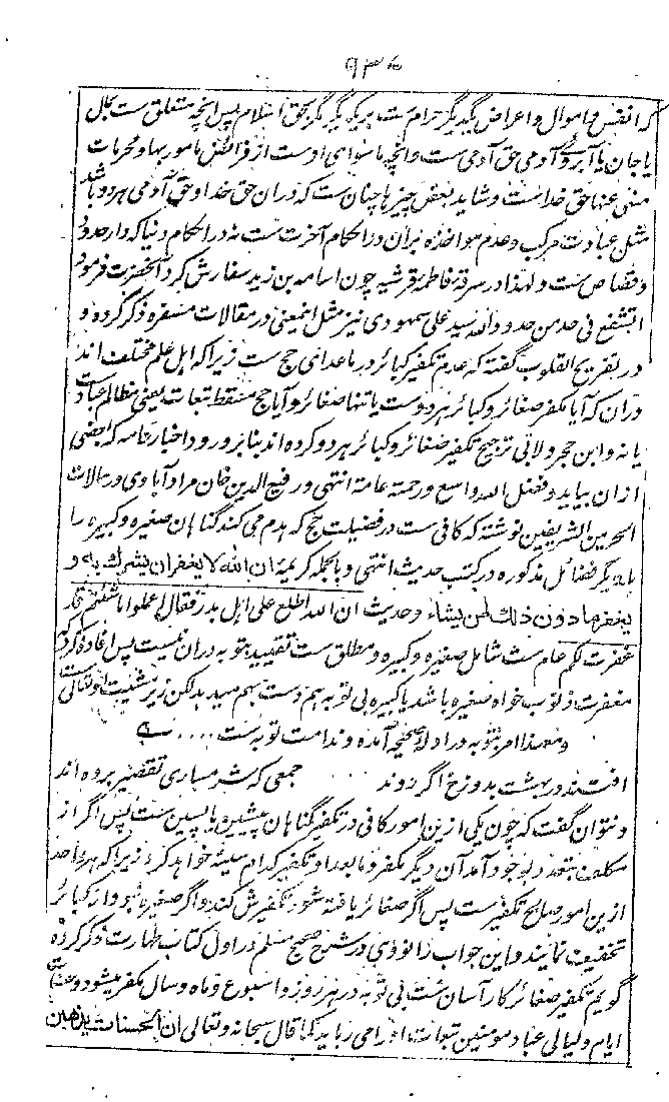 ۹۳۶
که انفس و اموال و اعراض یکدیگر حرام ست بریکدیگر مگر بحق اسلام پس انچه متعلق ست بمال
یا جان یا آبروی آدمی حق آدمی ست و انچه ماسوای اوست از فرائض مامور بها و محرمات
منهی عنها حق خداست و شاید بعض چیزها چنان ست که دران حق خدا و حق آدمی هر دو باشد
مثل عبادت مرکب و عدم مواخذه بران در احکام آخرت ست نه در احکام دنیا که وار حدود
و قصاص ست و لهذا در سرقهٔ فاطمه قرشیه چون اسامه بن زید سفارش کرد آنحضرت فرمود
اتشفع فی حد من حدود الله سید علی سمهودی نیز مثل اینمعنی در مقالات مسفره ذکر کرده و
در تفریح القلوب گفته که عدم تکفیر کبائر در ماعدای حج ست زیرا که اهل علم مختلف اند
دران که آیا مکفر صغائر و کبائر هر دوست یا تنها صغائر و آیا حج مسقط تبعات یعنی مظالم عبادست
یا نه و ابن حجر و لابی ترجیح تکفیر صغائر و کبائر هر دو کرده اند بنابر ورود اخبار عامه که بعضی
ازان بیاید و فضل الله واسع و رحمته عامة انتهی و رفیع الدین خان مرادآبادی در حالات
الحرمین الشریفین نوشته که کافی ست در فضیلت حج که هدم می کند گناهان صغیره و کبیره را
با دیگر فضائل مذکوره در کتب حدیث انتهی و بالجمله کریمهٔ ان الله لا یغفر ان یشرك به و
یغفر ما دون ذلك لمن یشاء و حدیث ان الله اطلع علی اهل بدر فقال اعملوا ما شئتم قد
غفرت لکم عام ست شامل صغیره و کبیره و مطلق ست تقیید بتوبه دران نیست پس افاده کرد که
مغفرت ذنوب خواه صغیره باشد یا کبیره بی توبه هم دست بهم میدهد لکن زیر مشیت او تعالی ست
و معهذا امر بتوبه در ادلهٔ صحیحه آمده و ندامت توبه ست
افتند در بهشت بدوزخ اگر روند جمعی که شرمساری تقصیر برده اند
و نتوان گفت که چون یکی ازین امور کافی در تکفیر گناهان پیشین و یا پسین ست پس اگر از
مکلف متعدد بوجود آمد آن دیگر مکفر و مابعد او تکفیر کدام سیئه خواهد کرد زیرا که هر واحد
ازین امور صالح تکفیر ست پس اگر صغائر یافته شود تکفیرش کند و اگر صغیره نبود از کبائر
تخفیف نمایند و این جواب را نووی در شرح صحیح مسلم در اول کتاب طهارت ذکر کرده
گویم تکفیر صغائر کار آسان ست بی توبه در هر روز و اسبوع و ماه و سال مکفر میشود و
ایام و لیالی عباد مومنین تبعات او را می رباید کما قال سبحانه و تعالی ان الحسنات یذهبن